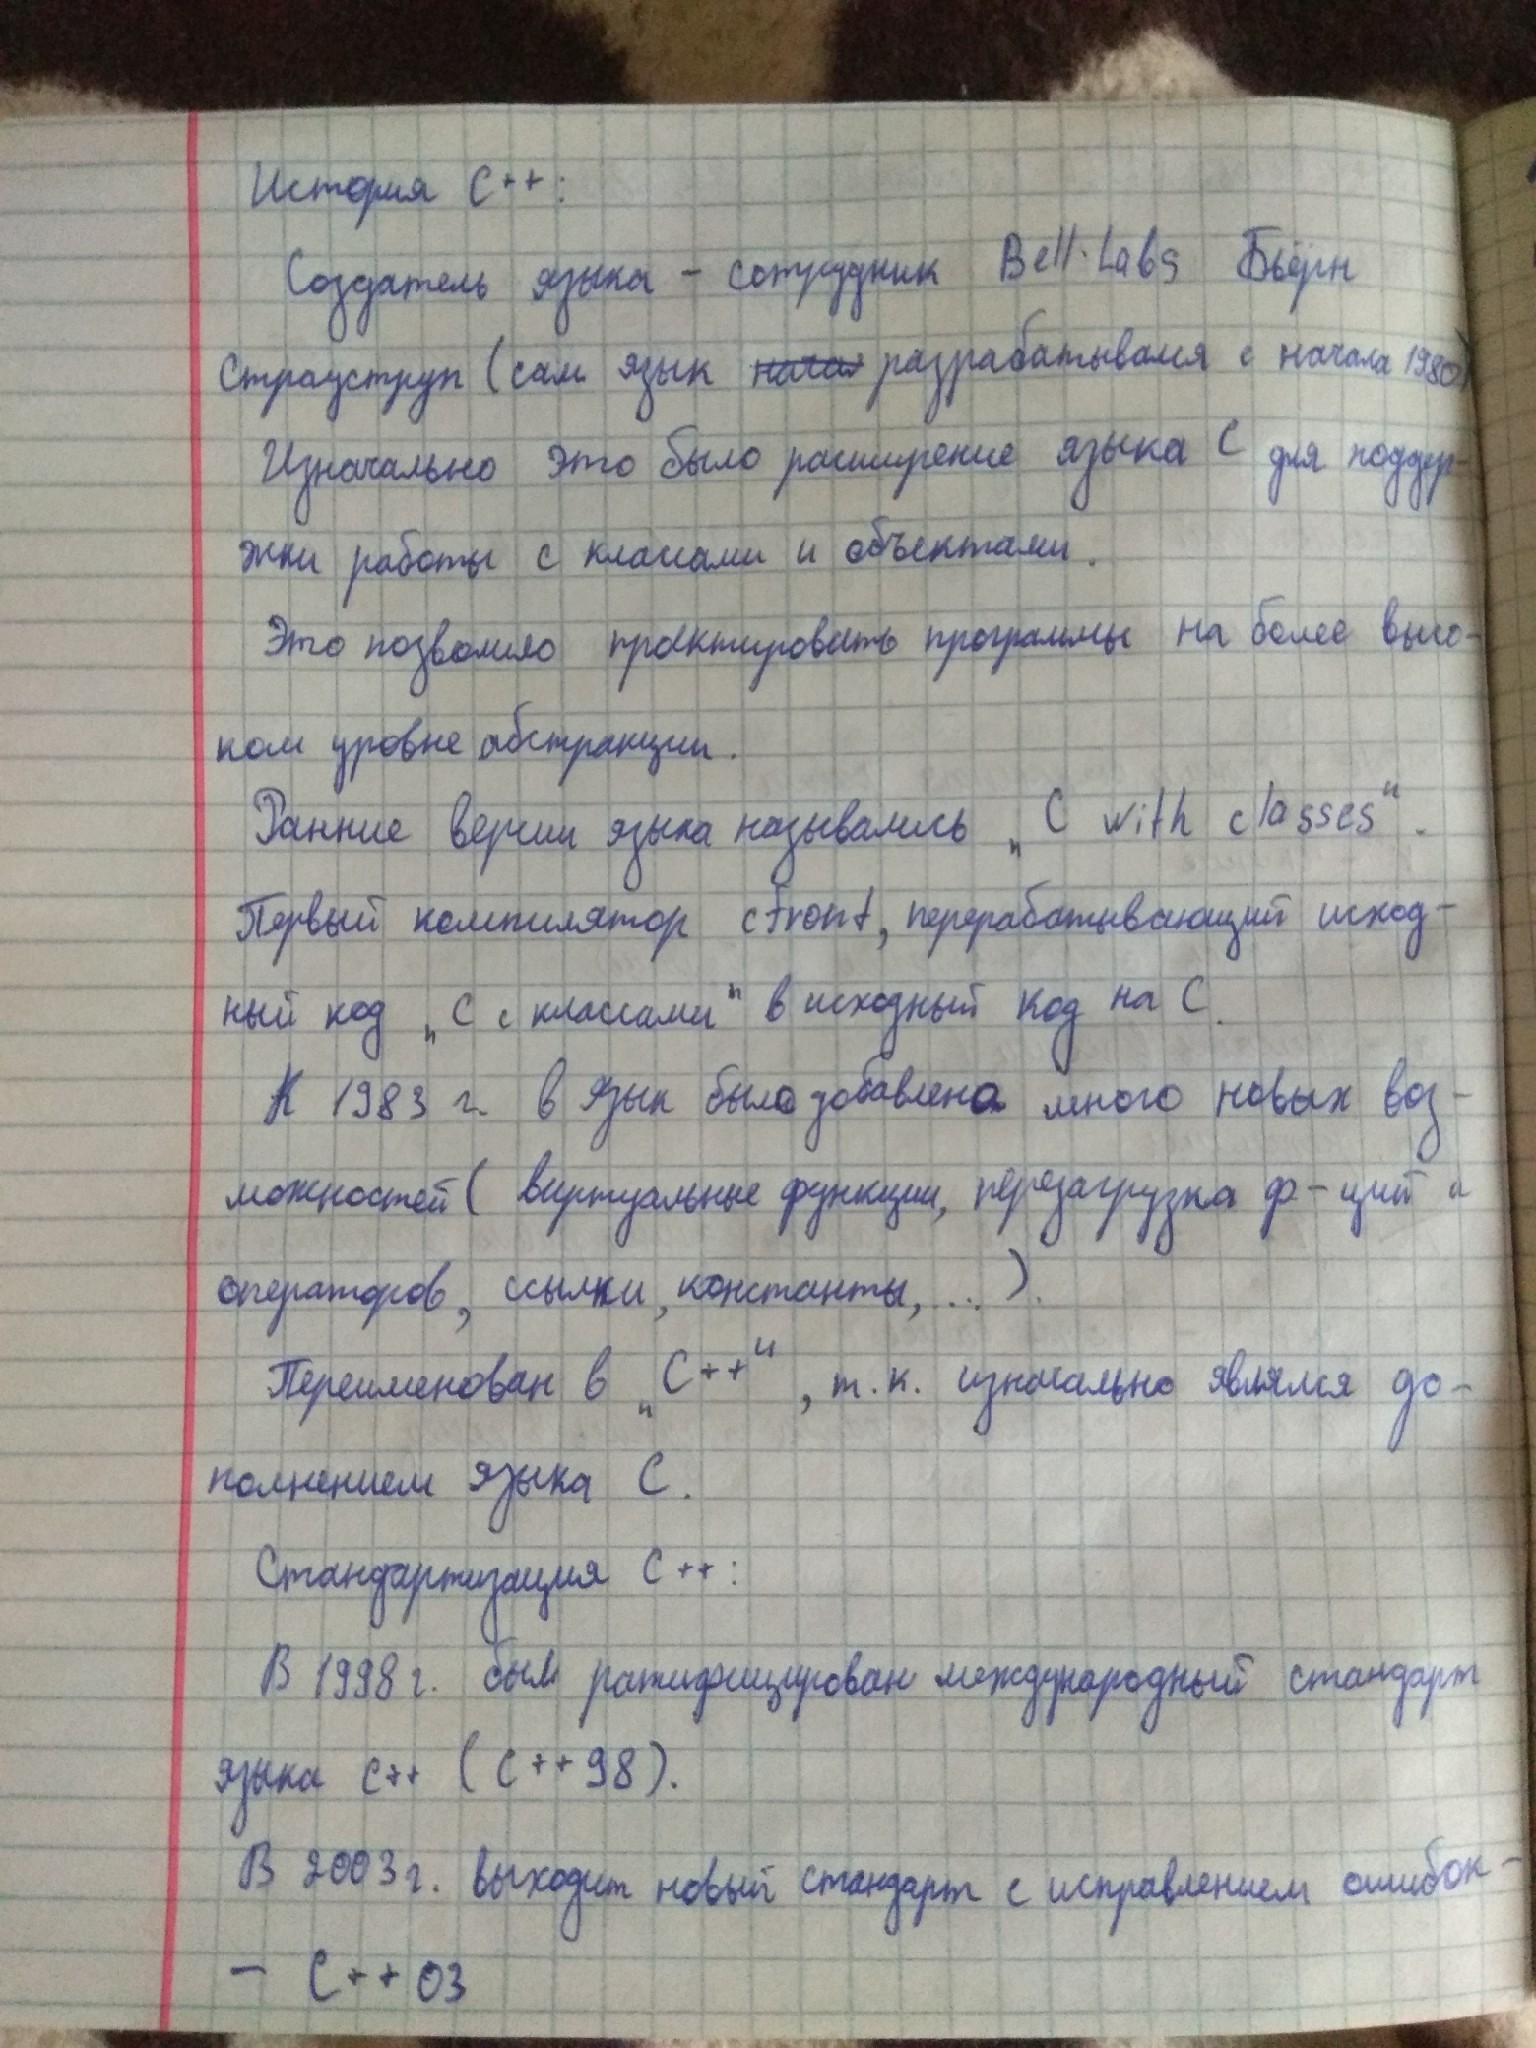 История C++:
Создатель языка - сотрудник Bell-Labs Бьёрн
Страуструп (сам язык разрабатывался с начала 1980)
Изначально это было расширение языка C для поддер-
жки работы с классами и объектами.
Это позволило проектировать программы на более высо-
ком уровне абстракции.
Ранние версии языка назывались „C with classes".
Первый компилятор cfront, перерабатывающий исход-
ный код „C с классами" в исходный код на C.
К 1983 г. в язык было добавлено много новых воз-
можностей ( виртуальные функции, перезагрузка ф-ций и
операторов, ссылки, константы, ... ).
Переименован в „C++", т.к. изначально являлся до-
полнением языка C.
Стандартизация C++:
В 1998 г. был ратифицирован международный стандарт
языка C++ ( C++98 ).
В 2003 г. выходит новый стандарт с исправлением ошибок -
- C++03